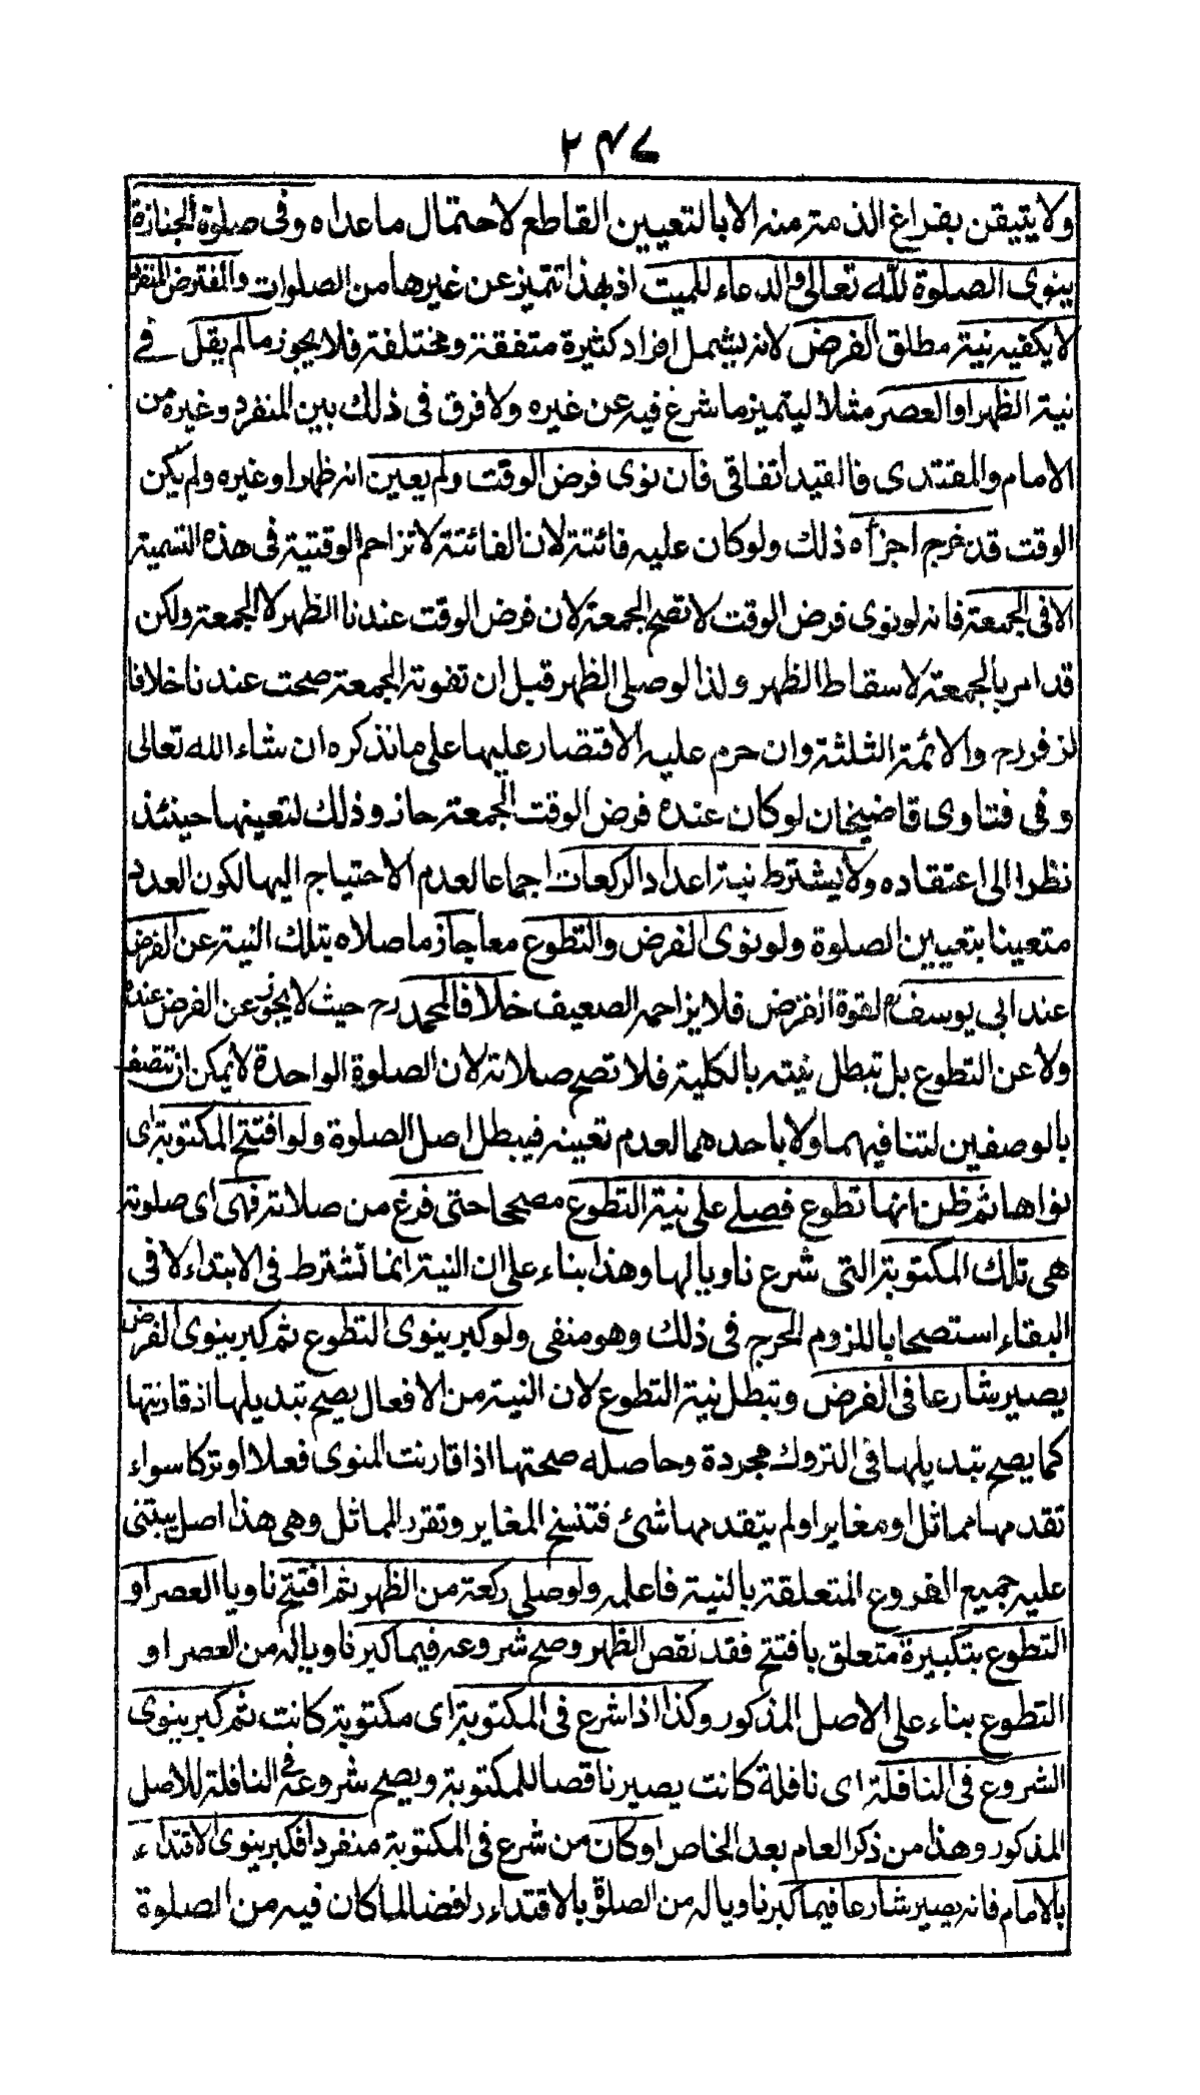 ٢٤٧
ولا يتيقن بفراغ الذمة منه الا بالتعيين القاطع لاحتمال ما عداه وفى صلوة الجنازة
ينوى الصلوة لله تعالى والدعاء للميت اذ بهذا تتميز عن غيرها من الصلوات والمفترض المنفرد
لا يكفيه نية مطلق الفرض لانه يشمل افراد كثيرة متفقة ومختلفة فلا يجوز مالم يقل فى
نية الظهر او العصر مثلا ليتميز ما شرع فيه عن غيره ولا فرق فى ذلك بين المنفرد وغيره من
الامام والمقتدى فالقيد اتفاقى فان نوى فرض الوقت ولم يعين انه ظهر او غيره ولم يكن
الوقت قد خرج اجزأه ذلك ولو كان عليه فائتة لان الفائتة لا تزاحم الوقتية فى هذه التسمية
الا فى الجمعة فانه لو نوى فرض الوقت لا تصح الجمعة لان فرض الوقت عندنا الظهر لا الجمعة ولكن
قد امر بالجمعة لاسقاط الظهر ولذا لو صلى الظهر قبل ان تفوته الجمعة صحت عندنا خلافا
لزفر رح والائمة الثلثة وان حرم عليه الاقتصار عليها على ما نذكره ان شاء الله تعالى
وفى فتاوى قاضيخان لو كان عنده فرض الوقت الجمعة جاز وذلك لتعينها حينئذ
نظرا الى اعتقاده ولا يشترط نية اعداد الركعات اجماعا لعدم الاحتياج اليها لكون العدد
متعينا بتعيين الصلوة ولو نوى الفرض والتطوع معا جاز ما صلاه بتلك النية عن الفرض
عند ابى يوسف رح لقوة الفرض فلا يزاحمه الضعيف خلافا لمحمد رح حيث لا يجوز عن الفرض عنده
ولا عن التطوع بل تبطل نيته بالكلية فلا تصح صلاته لان الصلوة الواحدة لا يمكن ان تتصف
بالوصفين لتنافيهما ولا باحدهما لعدم تعينه فيبطل اصل الصلوة ولو افتتح المكتوبة اى
نواها ثم ظن انها تطوع فصلى على نية التطوع مصححا حتى فرغ من صلاته فهى اى صلوته
هى تلك المكتوبة التى شرع ناويا لها وهذا بناء على ان النية انما تشترط فى الابتداء لا فى
البقاء استصحابا للزوم الحرج فى ذلك وهو منفى ولو كبر ينوى التطوع ثم كبر ينوى الفرض
يصير شارعا فى الفرض وتبطل نية التطوع لان النية من الافعال يصح تبديلها اذ قارنتها
كما يصح تبديلها فى التروك مجردة وحاصله صحتها اذا قارنت المنوى فعلا او تركا سواء
تقدمها مماثل او مغاير او لم يتقدمها شئ فتنسخ المغاير وتقرر المماثل وهى هذا اصل يبتنى
عليه جميع الفروع المتعلقة بالنية فاعلمه ولو صلى ركعة من الظهر ثم افتتح ناويا العصر او
التطوع بتكبيرة متعلق بافتتح فقد نقض الظهر وصح شروعه فيما كبر ناويا له من العصر او
التطوع بناء على الاصل المذكور وكذا اذا شرع فى المكتوبة اى مكتوبة كانت ثم كبر ينوى
الشروع فى النافلة اى نافلة كانت يصير ناقضا للمكتوبة ويصح شروعه فى النافلة للاصل
المذكور وهذا من ذكر العام بعد الخاص او كان من شرع فى المكتوبة منفردا فكبر ينوى الاقتداء
بالامام فانه يصير شارعا فيما كبر ناويا له من الصلوة بالاقتداء رافضا لما كان فيه من الصلوة